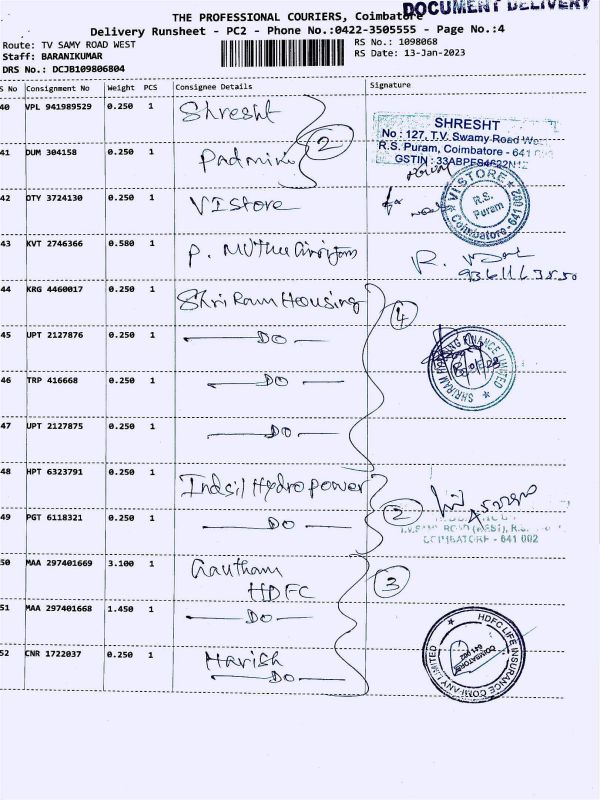 DOCUMENT DELIVERY
THE PROFESSIONAL COURIERS, Coimbatore
Delivery Runsheet - PC2 - Phone No.:0422-3505555 - Page No.:4
Route: TV SAMY ROAD WEST
RS No.: 1098068
Staff: BARANIKUMAR
RS Date: 13-Jan-2023
DRS No.: DCJB109806804
S No Consignment No Weight PCS Consignee Details Signature
40 VPL 941989529 0.250 1 Shresht
2
SHRESHT
No : 127, T.V. Swamy Road
R.S. Puram, Coimbatore - 641
GSTIN :
41 DUM 304158 0.250 1 Padmini
42 DTY 3724130 0.250 1 VI Store
VI STORE
R.S. Puram
Coimbatore - 641 002
43 KVT 2746366 0.580 1 P.
R.
44 KRG 4460017 0.250 1 Shri Ram Housing
4
45 UPT 2127876 0.250 1 DO
SHRIRAM HOUSING FINANCE LIMITED
46 TRP 416668 0.250 1 DO
47 UPT 2127875 0.250 1 DO
48 HPT 6323791 0.250 1 Indsil Hydro Power
2
49 PGT 6118321 0.250 1 DO
ROAD (WEST), R.S.
COIMBATORE - 641 002
50 MAA 297401669 3.100 1 Gautham
HDFC
3
51 MAA 297401668 1.450 1 DO
HDFC LIFE INSURANCE COMPANY LIMITED
COIMBATORE
641 002
52 CNR 1722037 0.250 1 Harish
DO